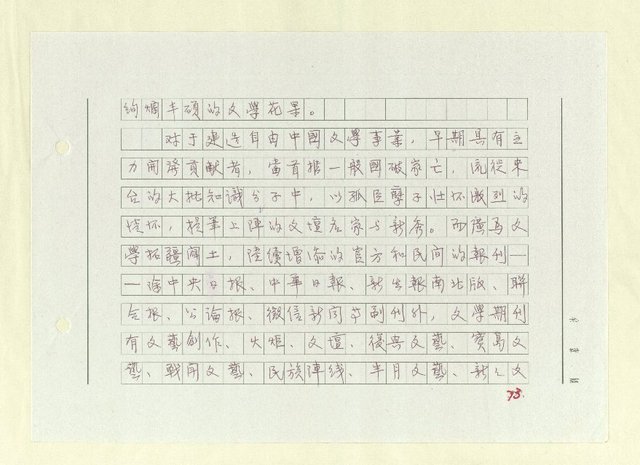 絢爛丰碩的文學花果。
对于建造自由中國文學事業，早期具有主
力開發貢献者，當首推一般國破家亡，流徙來
台的大批知識分子中，以孤臣孽子壮怀激烈的
情怀，提筆上陣的文壇名家与新秀。而廣為文
學拓疆闢土，陸續增添的官方和民间的報刊—
—途中央日报、中華日報、新生報南北版、聯
合报、公論报、徵信新闻等副刊外，文學期刊
有文藝創作、火炬、文壇、復兴文藝、寶島文
藝、戰鬥文藝、民族陣线、半月文藝、新文
73.